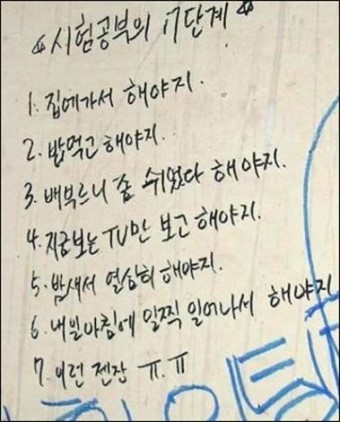 《시험공부의 7단계》
1. 집에가서 해야지.
2. 밥먹고 해야지.
3. 배부르니 좀 쉬었다 해야지.
4. 지금보는 TV만 보고 해야지.
5. 밤새서 열심히 해야지.
6. 내일아침에 일찍 일어나서 해야지
7. 이런 젠장 ㅠ.ㅠ